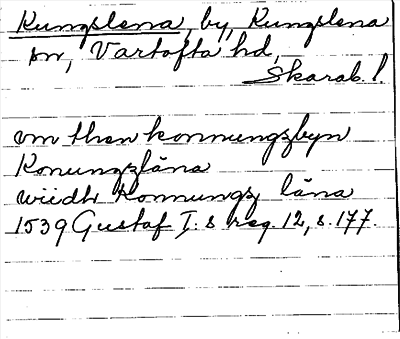 Kungslena, by, Kungslena
sn, Vartofta hd,
Skarab. l.
om then konnungzbyn
Konungzläna
wiidh Konnungz läna
1539 Gustaf I:s reg. 12, s. 177.